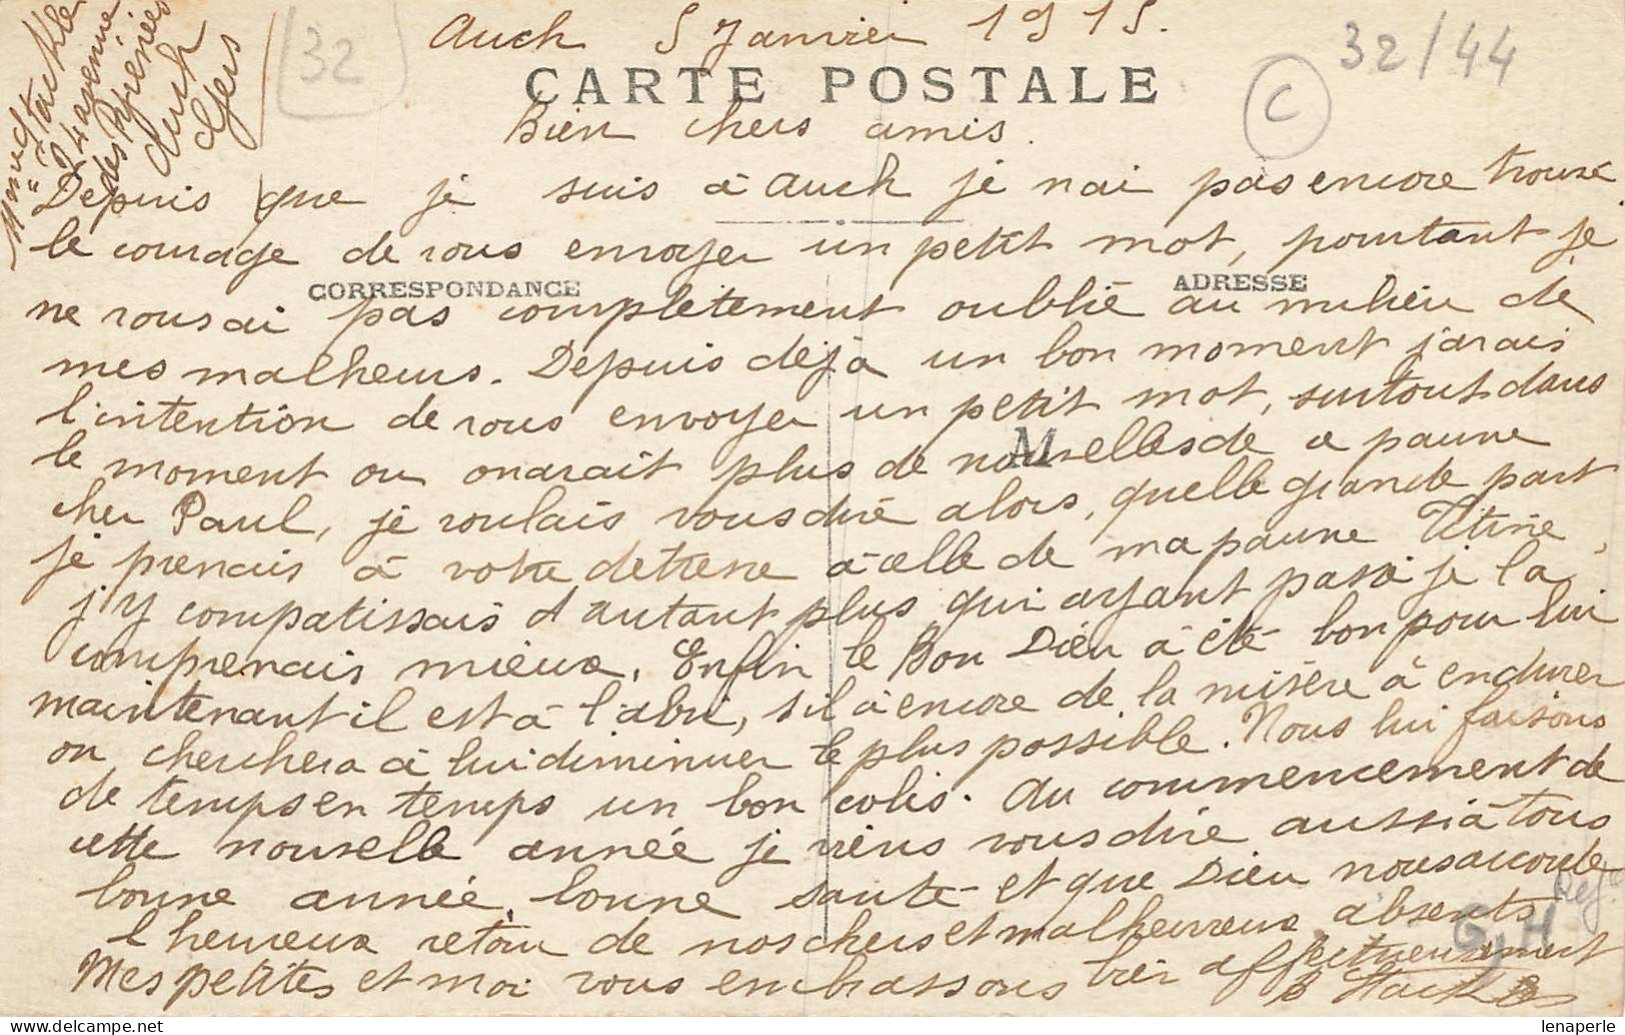 Auch 5 Janvier 1915.
32
32/44
CARTE POSTALE
C
24 avenue
des Pyrénées
Auch
Gers
Bien chers amis.
Depuis que je suis à Auch je nai pas encore trouvé
le courage de vous envoyer un petit mot, pourtant je
CORRESPONDANCE
ADRESSE
ne vous ai pas complètement oublié au milieu de
mes malheurs. Depuis déjà un bon moment javais
l'intention de vous envoyer un petit mot, surtout dans
M
le moment ou on avait plus de nouvelles de ce pauvre
cher Paul, je voulais vous dire alors, quelle grande part
je prenais à votre detresse à celle de ma pauvre Titine,
j'y compatissais d'autant plus, qui ayant passé je la
comprenais mieux. Enfin le Bon Dieu a été bon pour lui
maintenant il est à l'abri, s'il à encore de la misère à endurer
on cherchera à lui diminuer le plus possible. Nous lui faisons
de temps en temps un bon colis. Au commencement de
cette nouvelle année je viens vous dire aussi à tous
bonne année, bonne santé et que Dieu nous accorde
l'heureux retour de nos chers et malheureux absents
G, H
Mes petites et moi vous embrassons bien affectueusement
lenaperle